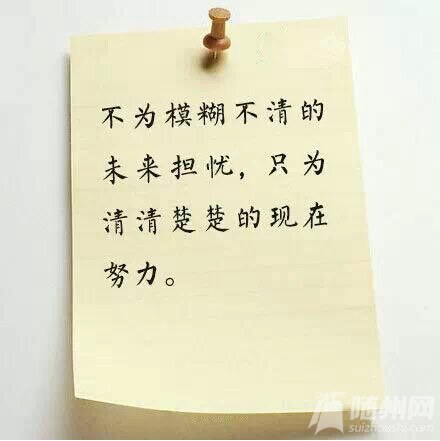 不为模糊不清的
未来担忧，只为
清清楚楚的现在
努力。
随州网
suizhoushi.com